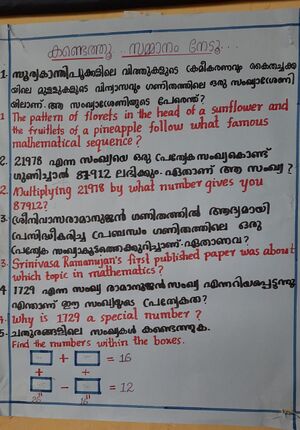 കണ്ടെത്തൂ... സമ്മാനം നേടൂ...
1. സൂര്യകാന്തിപൂക്കളിലെ വിത്തുകളുടെ ക്രമീകരണവും കൈതച്ചക്ക
യിലെ മുള്ളുകളുടെ വിന്യാസവും ഗണിതത്തിലെ ഒരു സംഖ്യാശ്രേണി
യിലാണ്. ആ സംഖ്യാശ്രേണിയുടെ പേരെന്ത്?
1. The pattern of florets in the head of a sunflower and
the fruitlets of a pineapple follow what famous
mathematical sequence?
2. 21978 എന്ന സംഖ്യയെ ഒരു പ്രത്യേക സംഖ്യകൊണ്ട്
ഗുണിച്ചാൽ 87912 ലഭിക്കും. ഏതാണ് ആ സംഖ്യ?
2. Multiplying 21978 by what number gives you
87912?
3. ശ്രീനിവാസരാമാനുജൻ ഗണിതത്തിൽ ആദ്യമായി
പ്രസിദ്ധീകരിച്ച പ്രബന്ധം ഗണിതത്തിലെ ഒരു
പ്രത്യേക സംഖ്യാകൂട്ടത്തെക്കുറിച്ചാണ്. ഏതാണവ?
3. Srinivasa Ramanujan's first published paper was about
which topic in mathematics?
4. 1729 എന്ന സംഖ്യ രാമാനുജൻ സംഖ്യ എന്നറിയപ്പെടുന്നു
എന്താണ് ഈ സംഖ്യയുടെ പ്രത്യേകത?
4. Why is 1729 a special number?
5. ചതുരങ്ങളിലെ സംഖ്യകൾ കണ്ടെത്തുക.
Find the numbers within the boxes.
+ = 16
+ +
- = 12